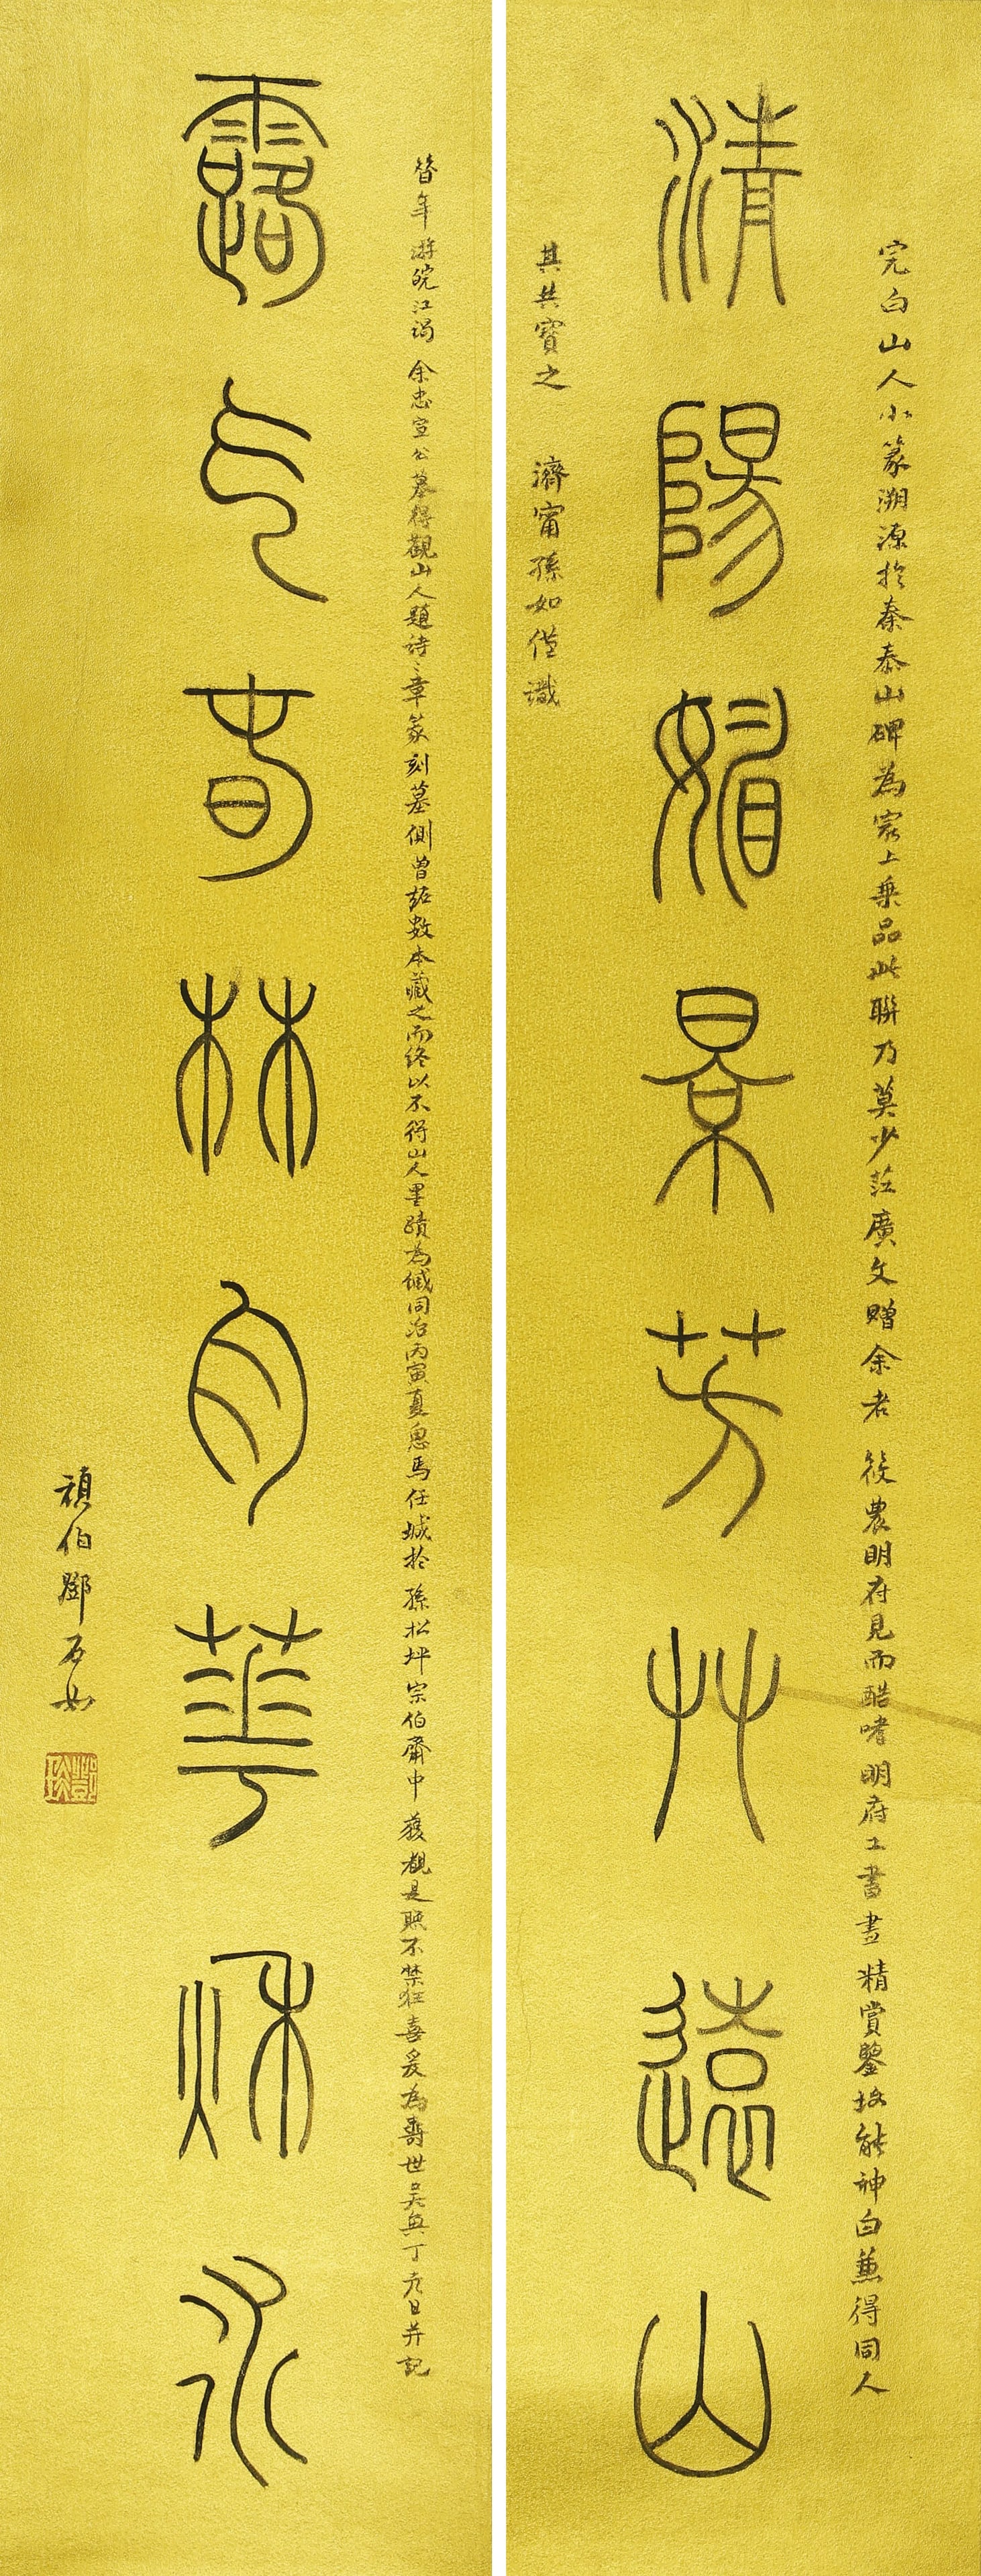 完白山人小篆溯源於秦泰山碑為㝡上乘品此聯乃莫少莊廣文贈余者 筱農明府見而酷嗜明府工書畫精賞鑒故能神白兼得同人
清陽媚景芳艸遠山
其共寶之 濟甯孫如僅識
昔年游皖江謁 余忠宣公墓得觀山人題詩二章篆刻墓側曾拓數本藏之而終以不得山人墨蹟為憾同治丙寅夏息馬任城於 孫松坪宗伯齋中 獲觀是聯不禁狂喜爰為壽世吳興丁彥臣并記
露气春林月華秌水
頑伯鄧石如
鄧琰